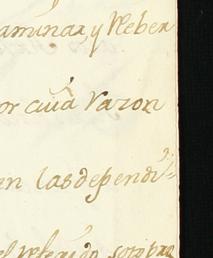 aminar, y Reber
or cuia razon
en las dependi
el referido sobre